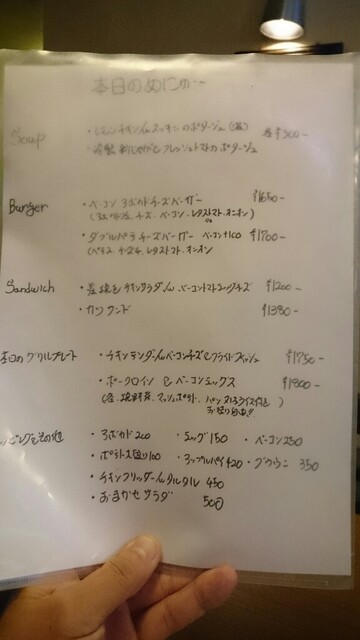 本日のめにゅー
Soup
・チキン ズッキーニのポタージュ(温) 各¥500-
・冷製 新じゃがとフレッシュトマトのポタージュ
Burger
・ベーコンアボカドチーズバーガー ¥1650-
チーズ、ベーコン、レタス、トマト、オニオン
・ダブルパティチーズバーガー ベーコン+100 ¥1700-
(パティ2、チーズ2、レタス、トマト、オニオン
Sandwich
・チキンサラダ ベーコントマトチーズ ¥1200-
・カツサンド ¥1380-
本日のグリルプレート
・チキンテンダー ベーコンチーズとフライドフィッシュ ¥1750-
・ポークロインとベーコンミックス ¥1800-
マッシュポテト、パン又はライス付き
トッピングその他
・アボカド200 ・エッグ150 ・ベーコン250
・ポテト大盛り100 ・アップルパイ420 ・ブラウニー 350
・チキンフリッター タルタル 450
・おまかせサラダ 500